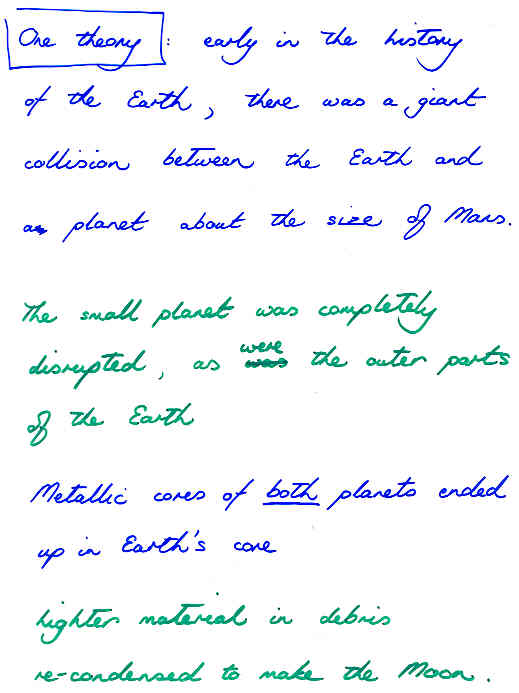 One theory : early in the history
of the Earth, there was a giant
collision between the Earth and
a planet about the size of Mars.
The small planet was completely
disrupted, as were the outer parts
of the Earth
Metallic cores of both planets ended
up in Earth's core
Lighter material in debris
re-condensed to make the Moon.